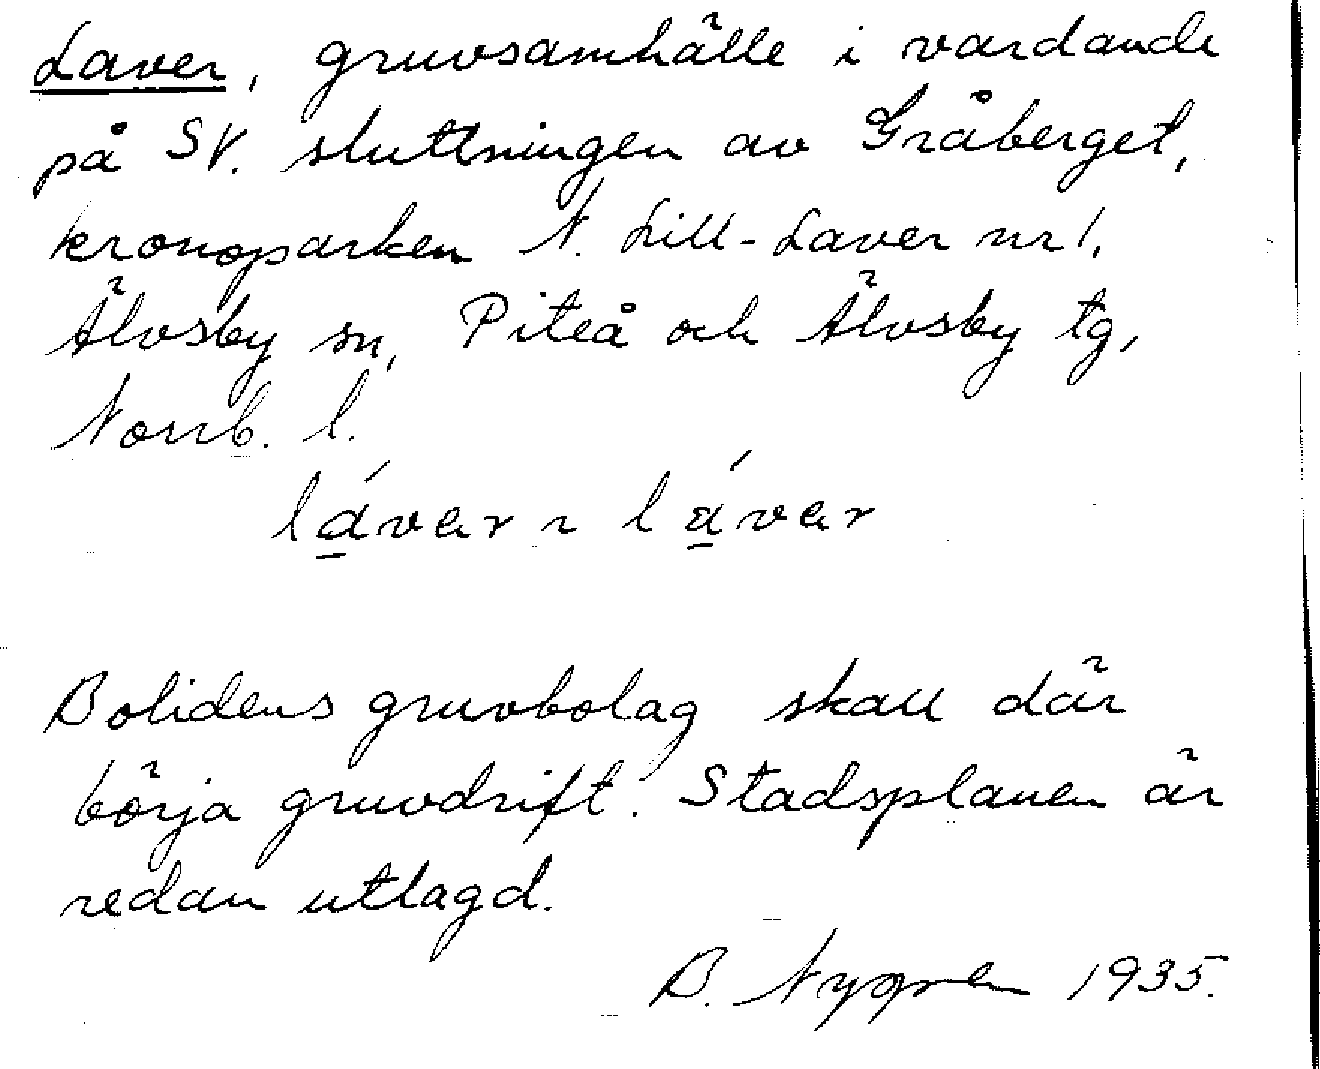 Laver, gruvsamhälle i vardande
på SV. sluttningen av Gråberget,
kronoparken N. Lill-Laver nr 1,
Älvsby sn, Piteå och Älvsby tg,
Norrb. l.
lávar ~ lávar
Bolidens gruvbolag skall där
börja gruvdrift. Stadsplanen är
redan utlagd.
B. Nygren 1935.